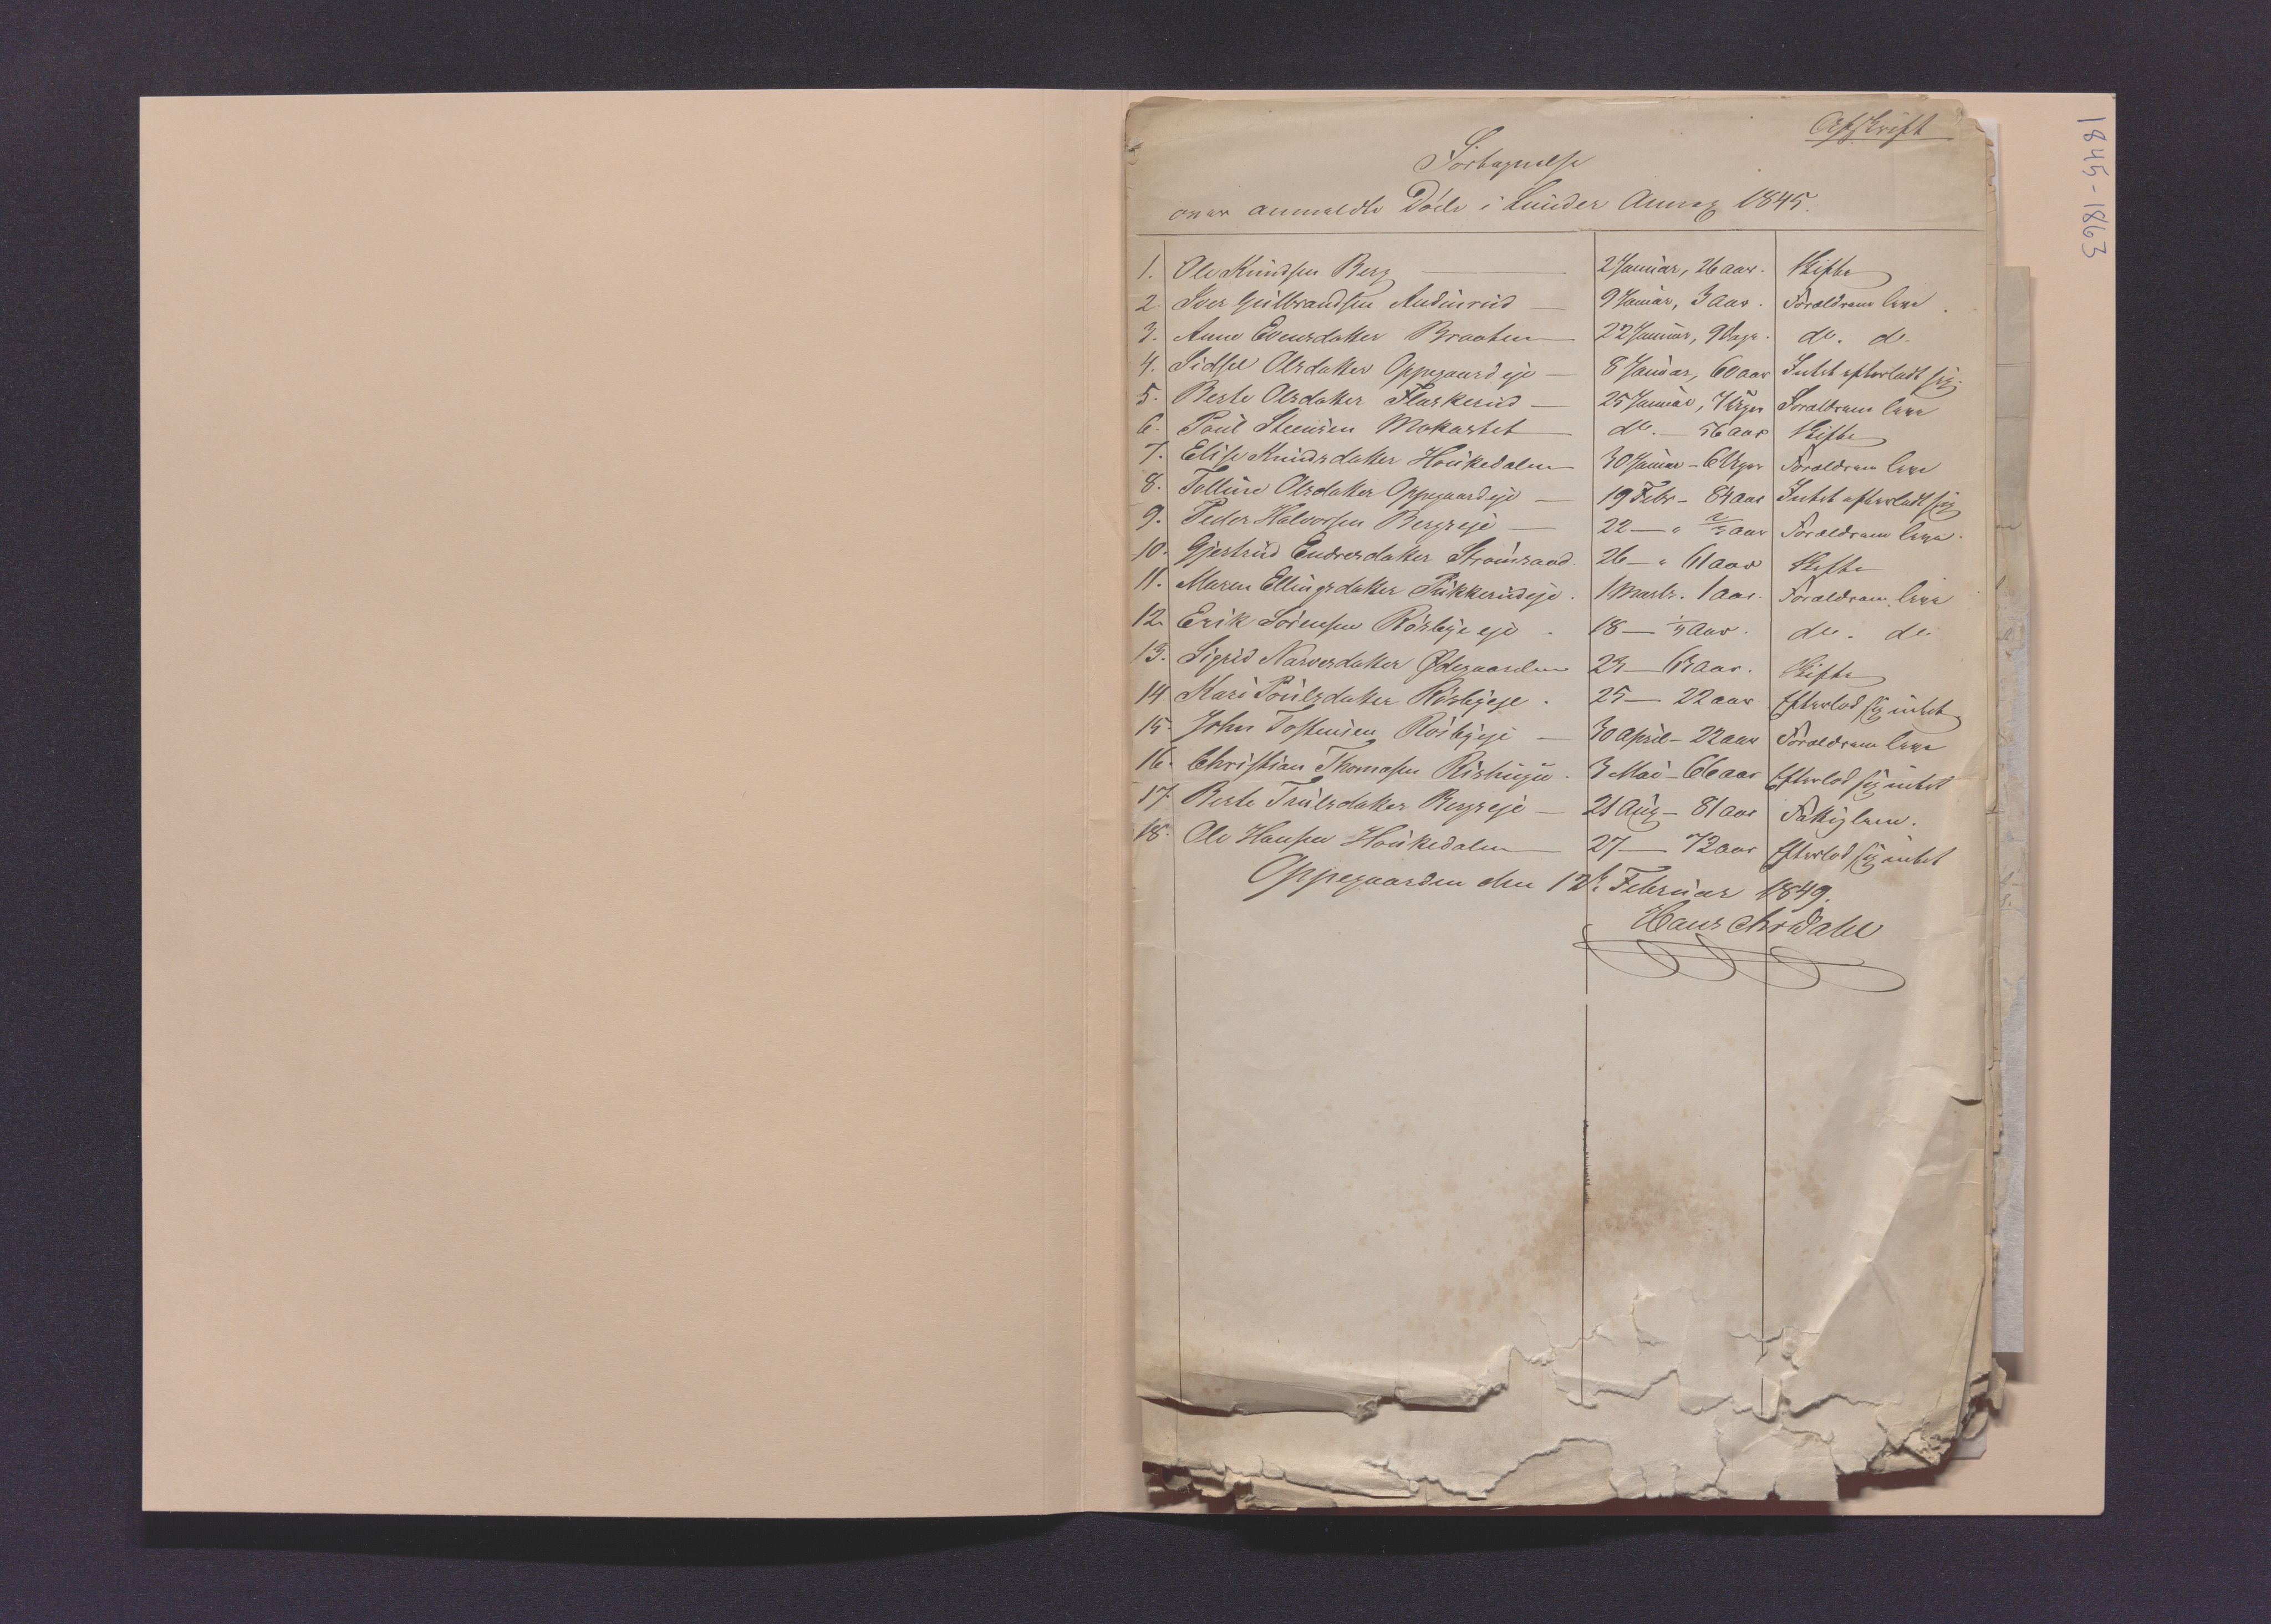 Afskrift
Fortegnelse
over anmeldte Døde i Lunder Annex 1845.
1. Ole Knudsen Berg — 2 Januar, 26 aar. Skifte
2. Iver Gulbrandsen Audunrud — 9 Januar, 3 aar. Forældrene leve.
3. Anne Evensdatter Braaten — 22 Januar, 9 Dage. do. do.
4. Sidsel Olsdatter Oppegaardeje — 8 Januar, 60 aar Intet efterladt sig.
5. Berte Olsdatter Flaskerud — 25 Januar, Forældrene leve
6. Poul Steensen — do. — 56 aar Skifte
7. Elise Knudsdatter Houkedalen — 30 Januar - 6 Uger Forældrene leve
8. Olsdatter Oppegaardeje — 19 Febr - 84 aar Intet efterladt sig
9. Peder Halvorsen Bergseje — 22 — " aar Forældrene leve.
10. Gjertrud Endresdatter Strømsaad. 26 — " 61 aar Skifte
11. Maren Ellingsdatter Pukkerudeje. 1 Marts. 1 aar. Forældrene leve
12. Erik Sørensen Røsbyeeje. 18 — aar. do. do.
13. Sigrid Narvesdatter Ødegaarden 23 — 63 aar. Skifte
14. Kari Poulsdatter Røsbyeje. 25 — 22 aar Efterlod sig intet
15. John Tostensen Røsbyeje — 30 April - 22 aar Forældrene leve
16. Christian Thomasen 3 Mai - 66 aar Efterlod sig intet
17. Berte Truulsdatter Bergseje — 21 Aug - 81 aar Fattiglem.
18. Ole Hansen Houkedalen — 27 — 72 aar Efterlod sig intet
Oppegaarden den 12te Februar 1849.
Hans Chr Dahl
1845-1863